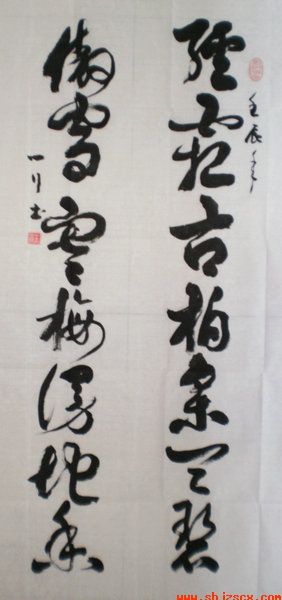 經霜古柏參天碧
壬辰
傲雪寒梅漫地香
書
www.shizscx.com